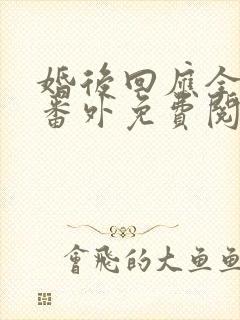 婚後回應全
番外免費閱
會飛的大魚魚